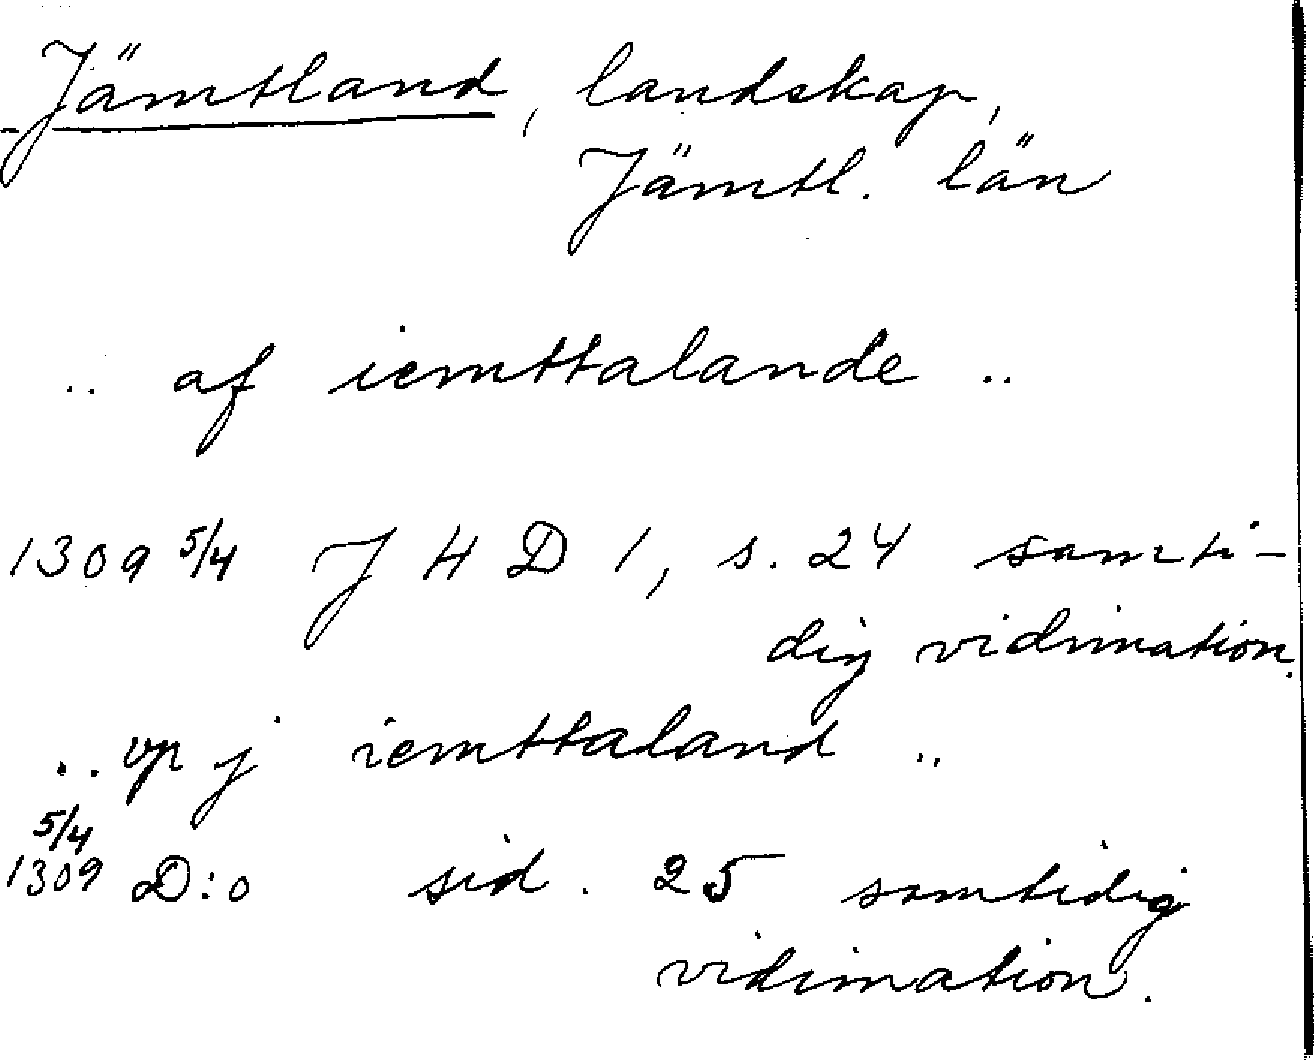 Jämtland, landskap,
Jämtl. län
.. af iemttalande ..
1309 5/4 J H D 1, s. 24 samti-
dig vidimation.
.. vp j iemttaland ..
5/4
1309 D:o sid. 25 samtidig
vidimation.